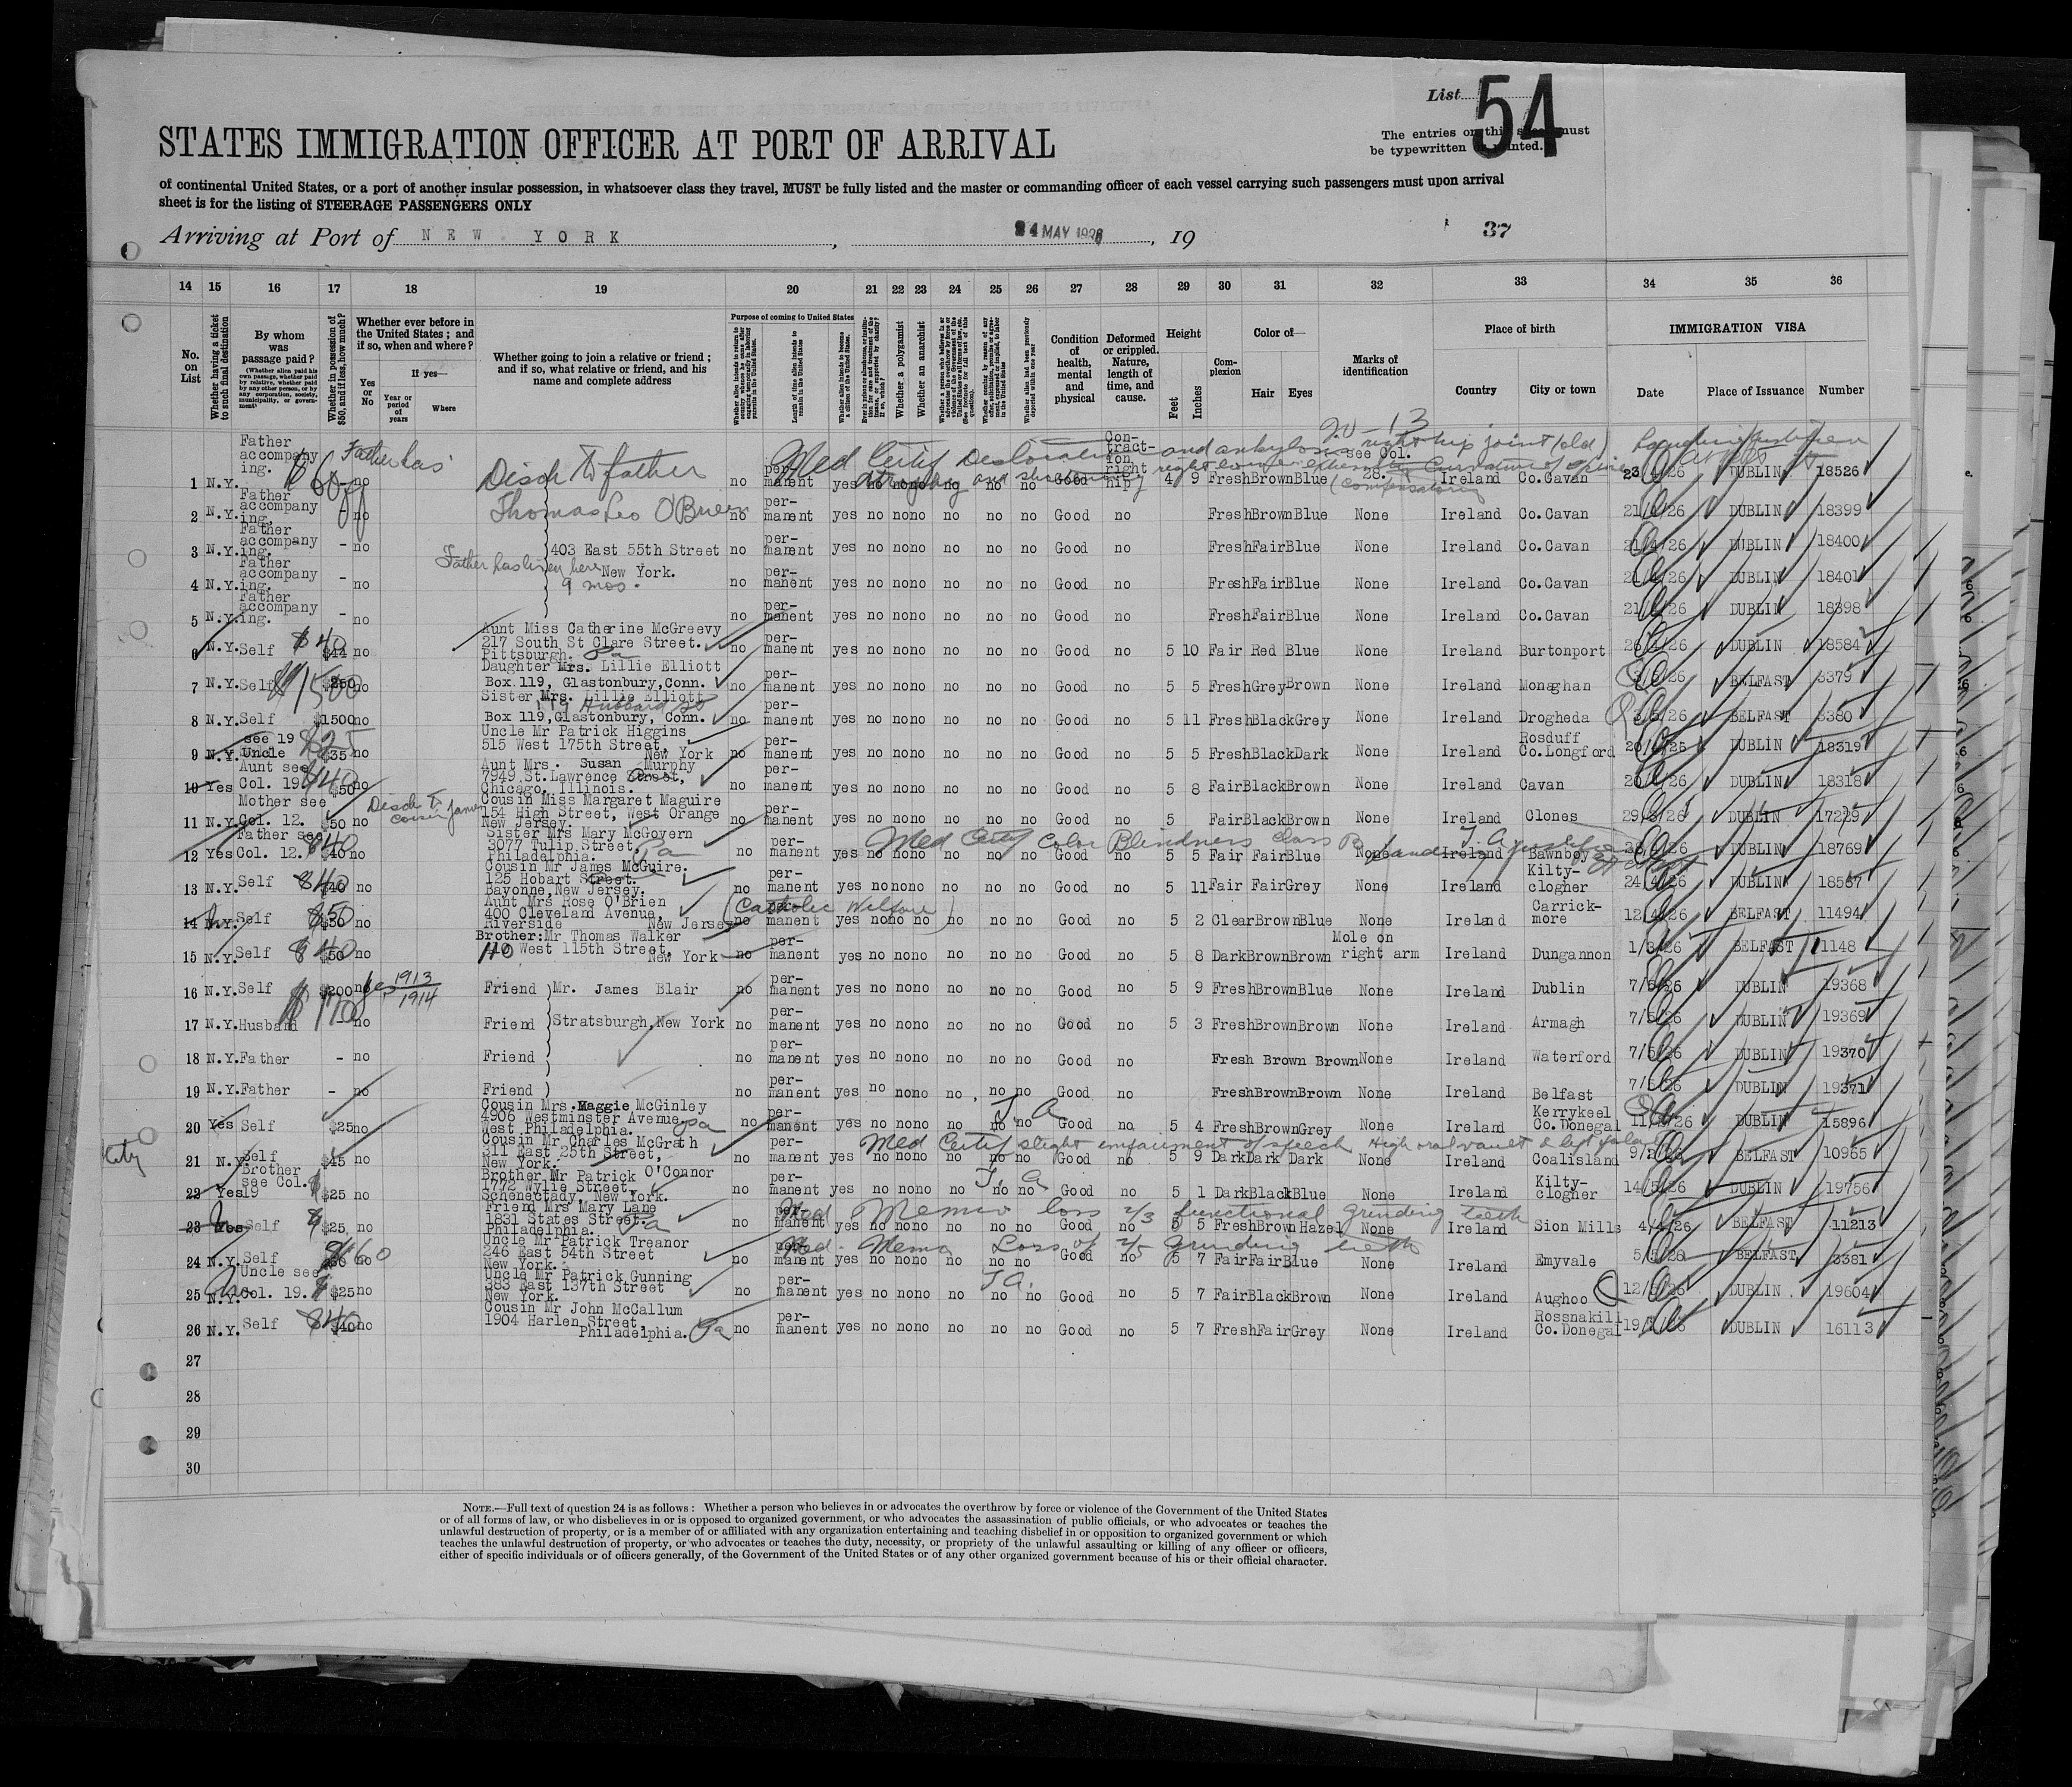 List 54
The entries on this sheet must
be typewritten or printed.
STATES IMMIGRATION OFFICER AT PORT OF ARRIVAL
of continental United States, or a port of another insular possession, in whatsoever class they travel, MUST be fully listed and the master or commanding officer of each vessel carrying such passengers must upon arrival
sheet is for the listing of STEERAGE PASSENGERS ONLY
Arriving at Port of NEW YORK, 24 MAY 1926, 19 37
14 15 16 17 18 19 20 21 22 23 24 25 26 27 28 29 30 31 32 33 34 35 36
No. on List
Whether having a ticket to such final destination
By whom was passage paid?
(Whether alien paid his own passage, whether paid by relative, whether paid by any other person, or by any corporation, society, municipality, or government)
Whether in possession of $50, and if less, how much?
Whether ever before in the United States; and if so, when and where?
Yes or No
If yes—
Year or period of years
Where
Whether going to join a relative or friend; and if so, what relative or friend, and his name and complete address
Purpose of coming to United States
Length of time alien intends to remain in the United States
Whether alien intends to become a citizen of the United States.
Whether a polygamist
Whether an anarchist
Condition of health, mental and physical
Deformed or crippled. Nature, length of time, and cause.
Height
Feet
Inches
Complexion
Color of—
Hair Eyes
Marks of identification
Place of birth
Country City or town
IMMIGRATION VISA
Date Place of Issuance Number
20-13
Med Certif Dislocation and ankylosis right hip joint (old)
right lower extremity Curvature of spine
(compensatory
Father accompanying. Father has
1 N.Y. $60 - no Disch to father no permanent yes no no no no no no Good Contraction right hip 4 9 Fresh Brown Blue see Col. 28. Ireland Co.Cavan 23/4/26 18526
2 N.Y. Father accompanying. no Thomas Leo O'Brien no permanent yes no no no no no no Good no Fresh Brown Blue None Ireland Co.Cavan 21/4/26 DUBLIN 18399
3 N.Y. Father accompanying. - no 403 East 55th Street no permanent yes no no no no no no Good no Fresh Fair Blue None Ireland Co.Cavan 21/4/26 DUBLIN 18400
Father has been here 9 mos.
4 N.Y. Father accompanying. - no New York. no permanent yes no no no no no no Good no Fresh Fair Blue None Ireland Co.Cavan 21/4/26 DUBLIN 18401
5 N.Y. Father accompanying. - no no permanent yes no no no no no no Good no Fresh Fair Blue None Ireland Co.Cavan 21/4/26 DUBLIN 18398
6 N.Y. Self $40 $44 no Aunt Miss Catherine McGreevy 217 South St Clare Street. Pittsburgh. Pa no permanent yes no no no no no no Good no 5 10 Fair Red Blue None Ireland Burtonport 26/4/26 DUBLIN 18584
7 N.Y. Self $1500 $250 no Daughter Mrs. Lillie Elliott Box.119, Glastonbury,Conn. no permanent yes no no no no no no Good no 5 5 Fresh Grey Brown None Ireland Monaghan 3/5/26 BELFAST 3379
8 N.Y. Self $1500 no Sister Mrs. Lillie Elliott 119 Hubbard St Box 119,Glastonbury, Conn. no permanent yes no no no no no no Good no 5 11 Fresh Black Grey None Ireland Drogheda 3/5/26 BELFAST 3380
9 N.Y. see 19 Uncle $25 $35 no Uncle Mr Patrick Higgins 515 West 175th Street, New York no permanent yes no no no no no no Good no 5 5 Fresh Black Dark None Ireland Rosduff Co.Longford DUBLIN 18319
10 Yes Aunt see Col. 19. $40 $50 no Aunt Mrs. Susan Murphy 7949 St.Lawrence Street, Chicago, Illinois. no permanent yes no no no no no no Good no 5 8 Fair Black Brown None Ireland Cavan 20/4/26 DUBLIN 18318
11 N.Y. Mother see Col. 12. $50 no Disch to cousin James Cousin Miss Margaret Maguire 154 High Street, West Orange New Jersey. no permanent yes no no no no no no Good no 5 Fair Black Brown None Ireland Clones DUBLIN 17229
Med Certif Color Blindness class B
12 Yes Father see Col. 12. $40 $40 no Sister Mrs Mary McGovern 3077 Tulip Street, Philadelphia. Pa no permanent yes no no no no no no Good no 5 5 Fair Fair Blue None Ireland Bawnboy DUBLIN 18769
13 N.Y. Self $40 $40 no Cousin Mr James McGuire. 125 Hobart Street. Bayonne,New Jersey. no permanent yes no no no no no no Good no 5 11 Fair Fair Grey None Ireland Kiltyclogher 24/4/26 DUBLIN 18567
14 N.Y. Self $50 $50 no Aunt Mrs Rose O'Brien 400 Cleveland Avenue, Riverside New Jersey (Catholic Welfare) no permanent yes no no no no no no Good no 5 2 Clear Brown Blue None Ireland Carrickmore 12/4/26 BELFAST 11494
15 N.Y. Self $40 $50 no Brother:Mr Thomas Walker 110 West 115th Street, New York no permanent yes no no no no no no Good no 5 8 Dark Brown Brown Mole on right arm Ireland Dungannon 1/3/26 BELFAST 1148
16 N.Y. Self $200 no yes 1913 1914 Friend Mr. James Blair no permanent yes no no no no no no Good no 5 9 Fresh Brown Blue None Ireland Dublin 7/5/26 DUBLIN 19368
17 N.Y. Husband $110 - no Friend Stratsburgh,New York no permanent yes no no no no no no Good no 5 3 Fresh Brown Brown None Ireland Armagh 7/5/26 DUBLIN 19369
18 N.Y. Father - no Friend no permanent yes no no no no no no Good no Fresh Brown Brown None Ireland Waterford 7/5/26 DUBLIN 19370
19 N.Y. Father - no Friend no permanent yes no no no no no no Good no Fresh Brown Brown None Ireland Belfast 7/5/26 DUBLIN 19371
20 Yes Self $25 no Cousin Mrs.Maggie McGinley 4906 Westminster Avenue, West Philadelphia. Pa no permanent yes no no no no no no Good no 5 4 Fresh Brown Grey None Ireland Kerrykeel Co.Donegal DUBLIN 15896
Med Certif slight impairment of speech High oral vault
21 N.Y. Self $45 no Cousin Mr Charles McGrath 311 East 25th Street, New York. no permanent yes no no no no no Good no 5 9 Dark Dark Dark None Ireland Coalisland BELFAST 10965
City
22 Yes Brother see Col. 19 $25 no Brother Mr Patrick O'Connor 1772 Wylie Street, Schenectady, New York. no permanent yes no no no no no no Good no 5 1 Dark Black Blue None Ireland Kiltyclogher 14/5/26 DUBLIN 19756
Med Memo loss 2/3 functional grinding teeth
23 Yes Self $25 no Friend Mrs Mary Lane 1831 States Street. Philadelphia. Pa no permanent yes no no no no no no Good no 5 5 Fresh Brown Hazel None Ireland Sion Mills BELFAST 11213
Med. Memo Loss of 2/5 grinding teeth
24 N.Y. Self $60 no Uncle Mr Patrick Treanor 246 East 54th Street New York. no permanent yes no no no no no no Good no 5 7 Fair Fair Blue None Ireland Emyvale 5/5/26 BELFAST 3381
25 N.Y. Uncle see Col. 19. $25 no Uncle Mr Patrick Gunning 383 East 137th Street New York. no permanent yes no no no no no no Good no 5 7 Fair Black Brown None Ireland Aughoo 12/5/26 DUBLIN 19604
26 N.Y. Self $40 $40 no Cousin Mr John McCallum 1904 Harlen Street, Philadelphia. Pa no permanent yes no no no no no no Good no 5 7 Fresh Fair Grey None Ireland Rossnakill Co.Donegal DUBLIN 16113
27
28
29
30
NOTE.—Full text of question 24 is as follows: Whether a person who believes in or advocates the overthrow by force or violence of the Government of the United States
or of all forms of law, or who disbelieves in or is opposed to organized government, or who advocates the assassination of public officials, or who advocates or teaches the
unlawful destruction of property, or is a member of or affiliated with any organization entertaining and teaching disbelief in or opposition to organized government or which
teaches the unlawful destruction of property, or who advocates or teaches the duty, necessity, or propriety of the unlawful assaulting or killing of any officer or officers,
either of specific individuals or of officers generally, of the Government of the United States or of any other organized government because of his or their official character.